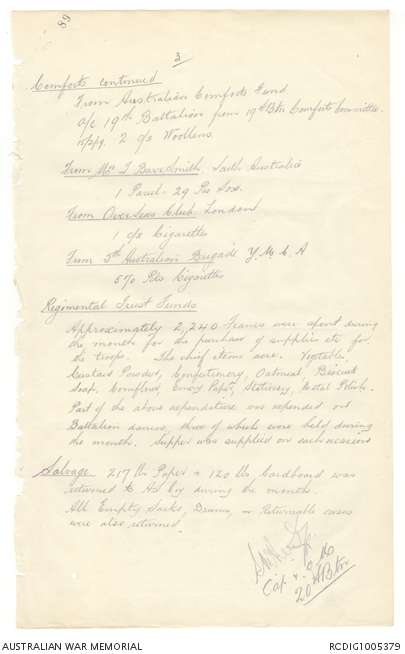 89
3
Comforts continued
From Australian Comforts Fund
a/c 19th Battalion from 19th Btn Comforts Committee
15/2/19. 2 c/s Woollens.
From Mrs J Bave Smith, South Australia
1 Parcel - 29 Prs Sox.
From Overseas Club London
1 c/s Cigarettes
From 5th Australian Brigade Y.M.C.A
570 Pkts Cigarettes
Regimental Trust Funds
Approximately 2,240 Francs were spent during
the month for the purchase of supplies etc for
the troops. The chief items were. Vegetable,
Custard Powder, Confectionery, Oatmeal, Biscuit
Soap, Cornflour, Emery Paper, Stationery, Metal Polish.
Part of the above expenditure was expended on
Battalion dances, three of which were held during
the month. Supper was supplied on each occasion
Salvage 217 lbs Paper & 120 lbs Cardboard was
returned to during the month.
All Empty Sacks, Drums, or Returnable cases
were also returned.
Capt & QM
20th Btn
AUSTRALIAN WAR MEMORIAL
RCDIG1005379